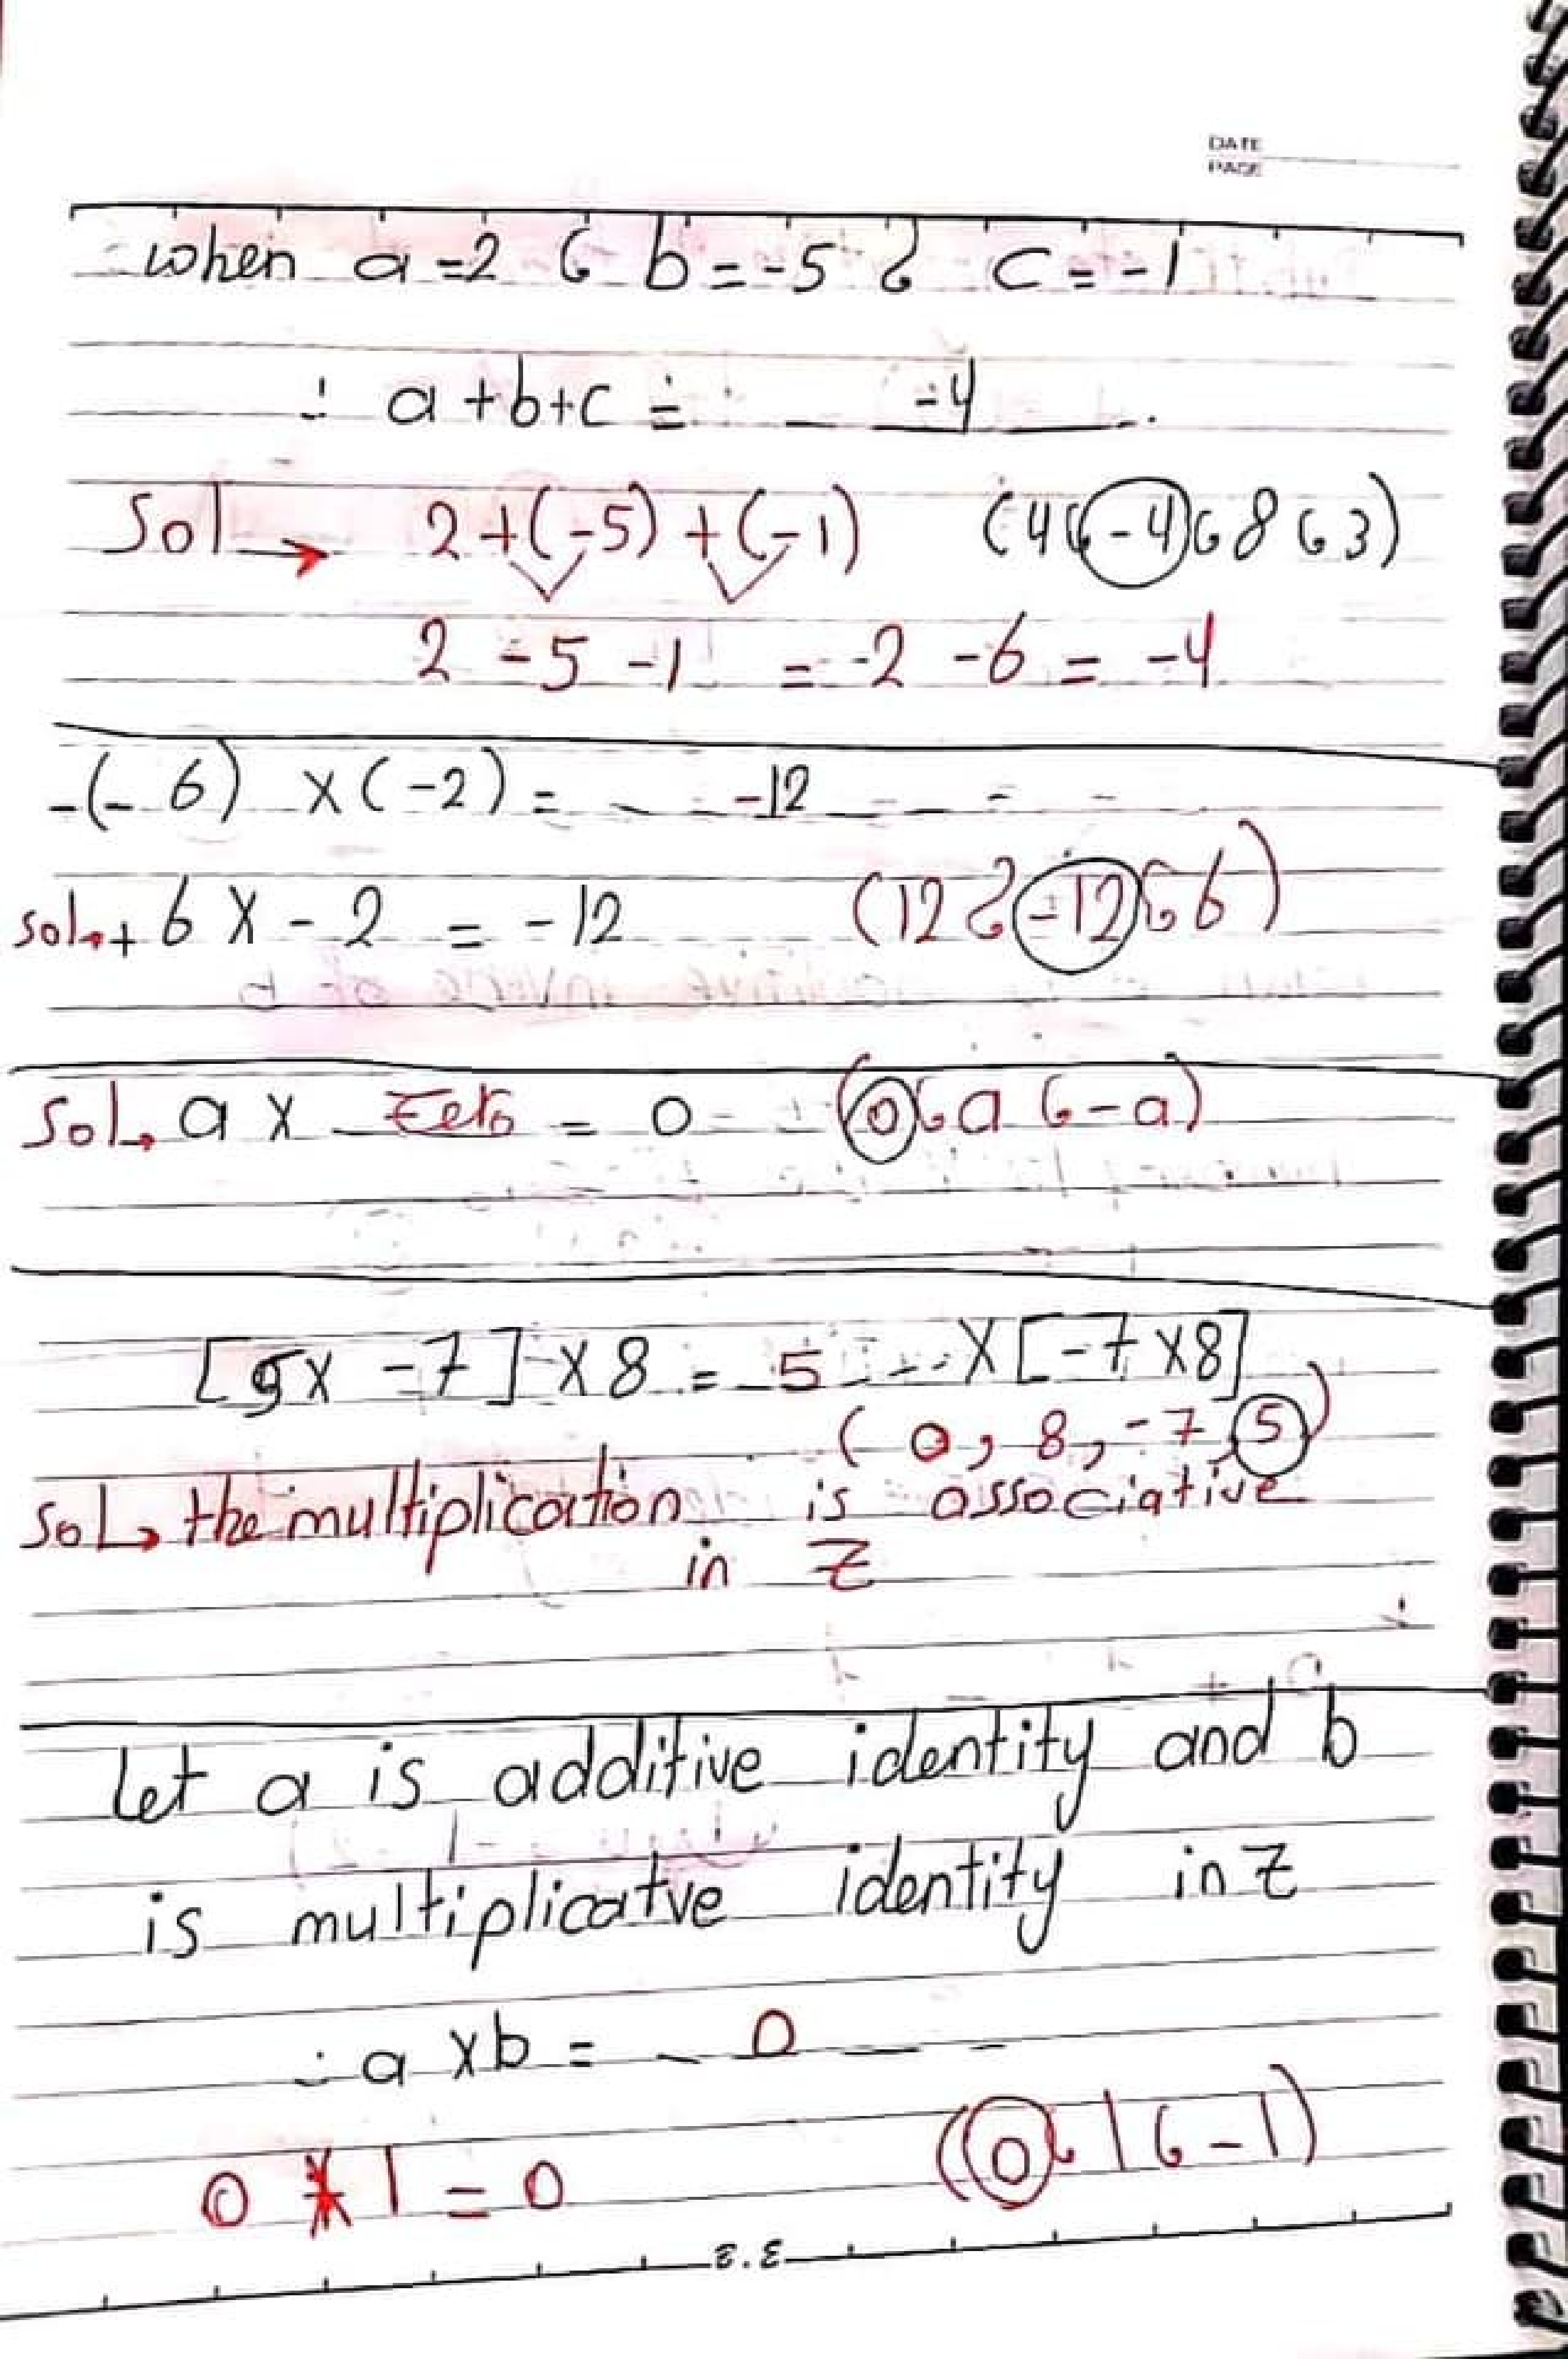 DATE
PAGE
when a=2 ، b=-5 ، c=-1
∴ a+b+c = -4
Sol → 2+(-5)+(-1) (4 ، -4 ، 8 ، 3)
2 -5 -1 = -2 -6 = -4
-(-6) x(-2) = -12
sol → + 6 x -2 = -12 (12 ، -12 ، 6)
Sol → a x Zero = 0 (0 ، a ، -a)
[5x -7] x8 = 5 x[-7 x8]
( 0, 8, -7, 5)
Sol → the multiplication is associative
in Z
let a is additive identity and b
is multiplicatve identity in Z
∴ a xb = 0
(0 ، 1 ، -1)
0 * 1 = 0